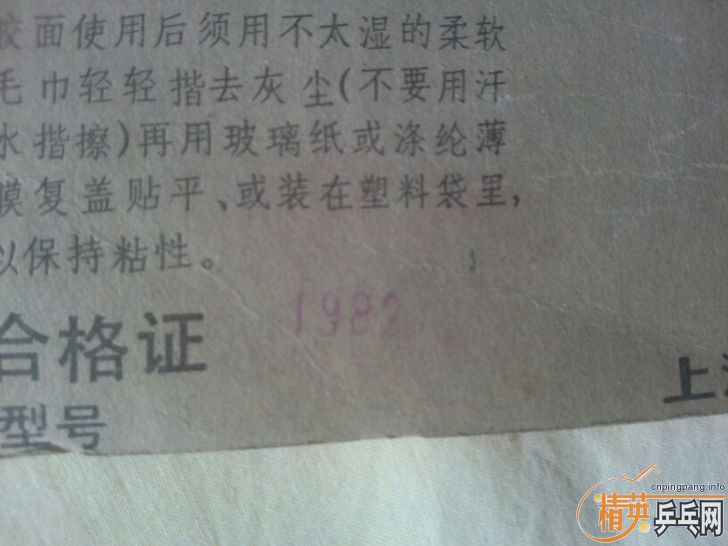 胶面使用后须用不太湿的柔软
毛巾轻轻揩去灰尘(不要用汗
水揩擦)再用玻璃纸或涤纶薄
膜复盖贴平、或装在塑料袋里,
以保持粘性。
1982
合格证
上
型号
cnpingpang.info
精英乒乓网